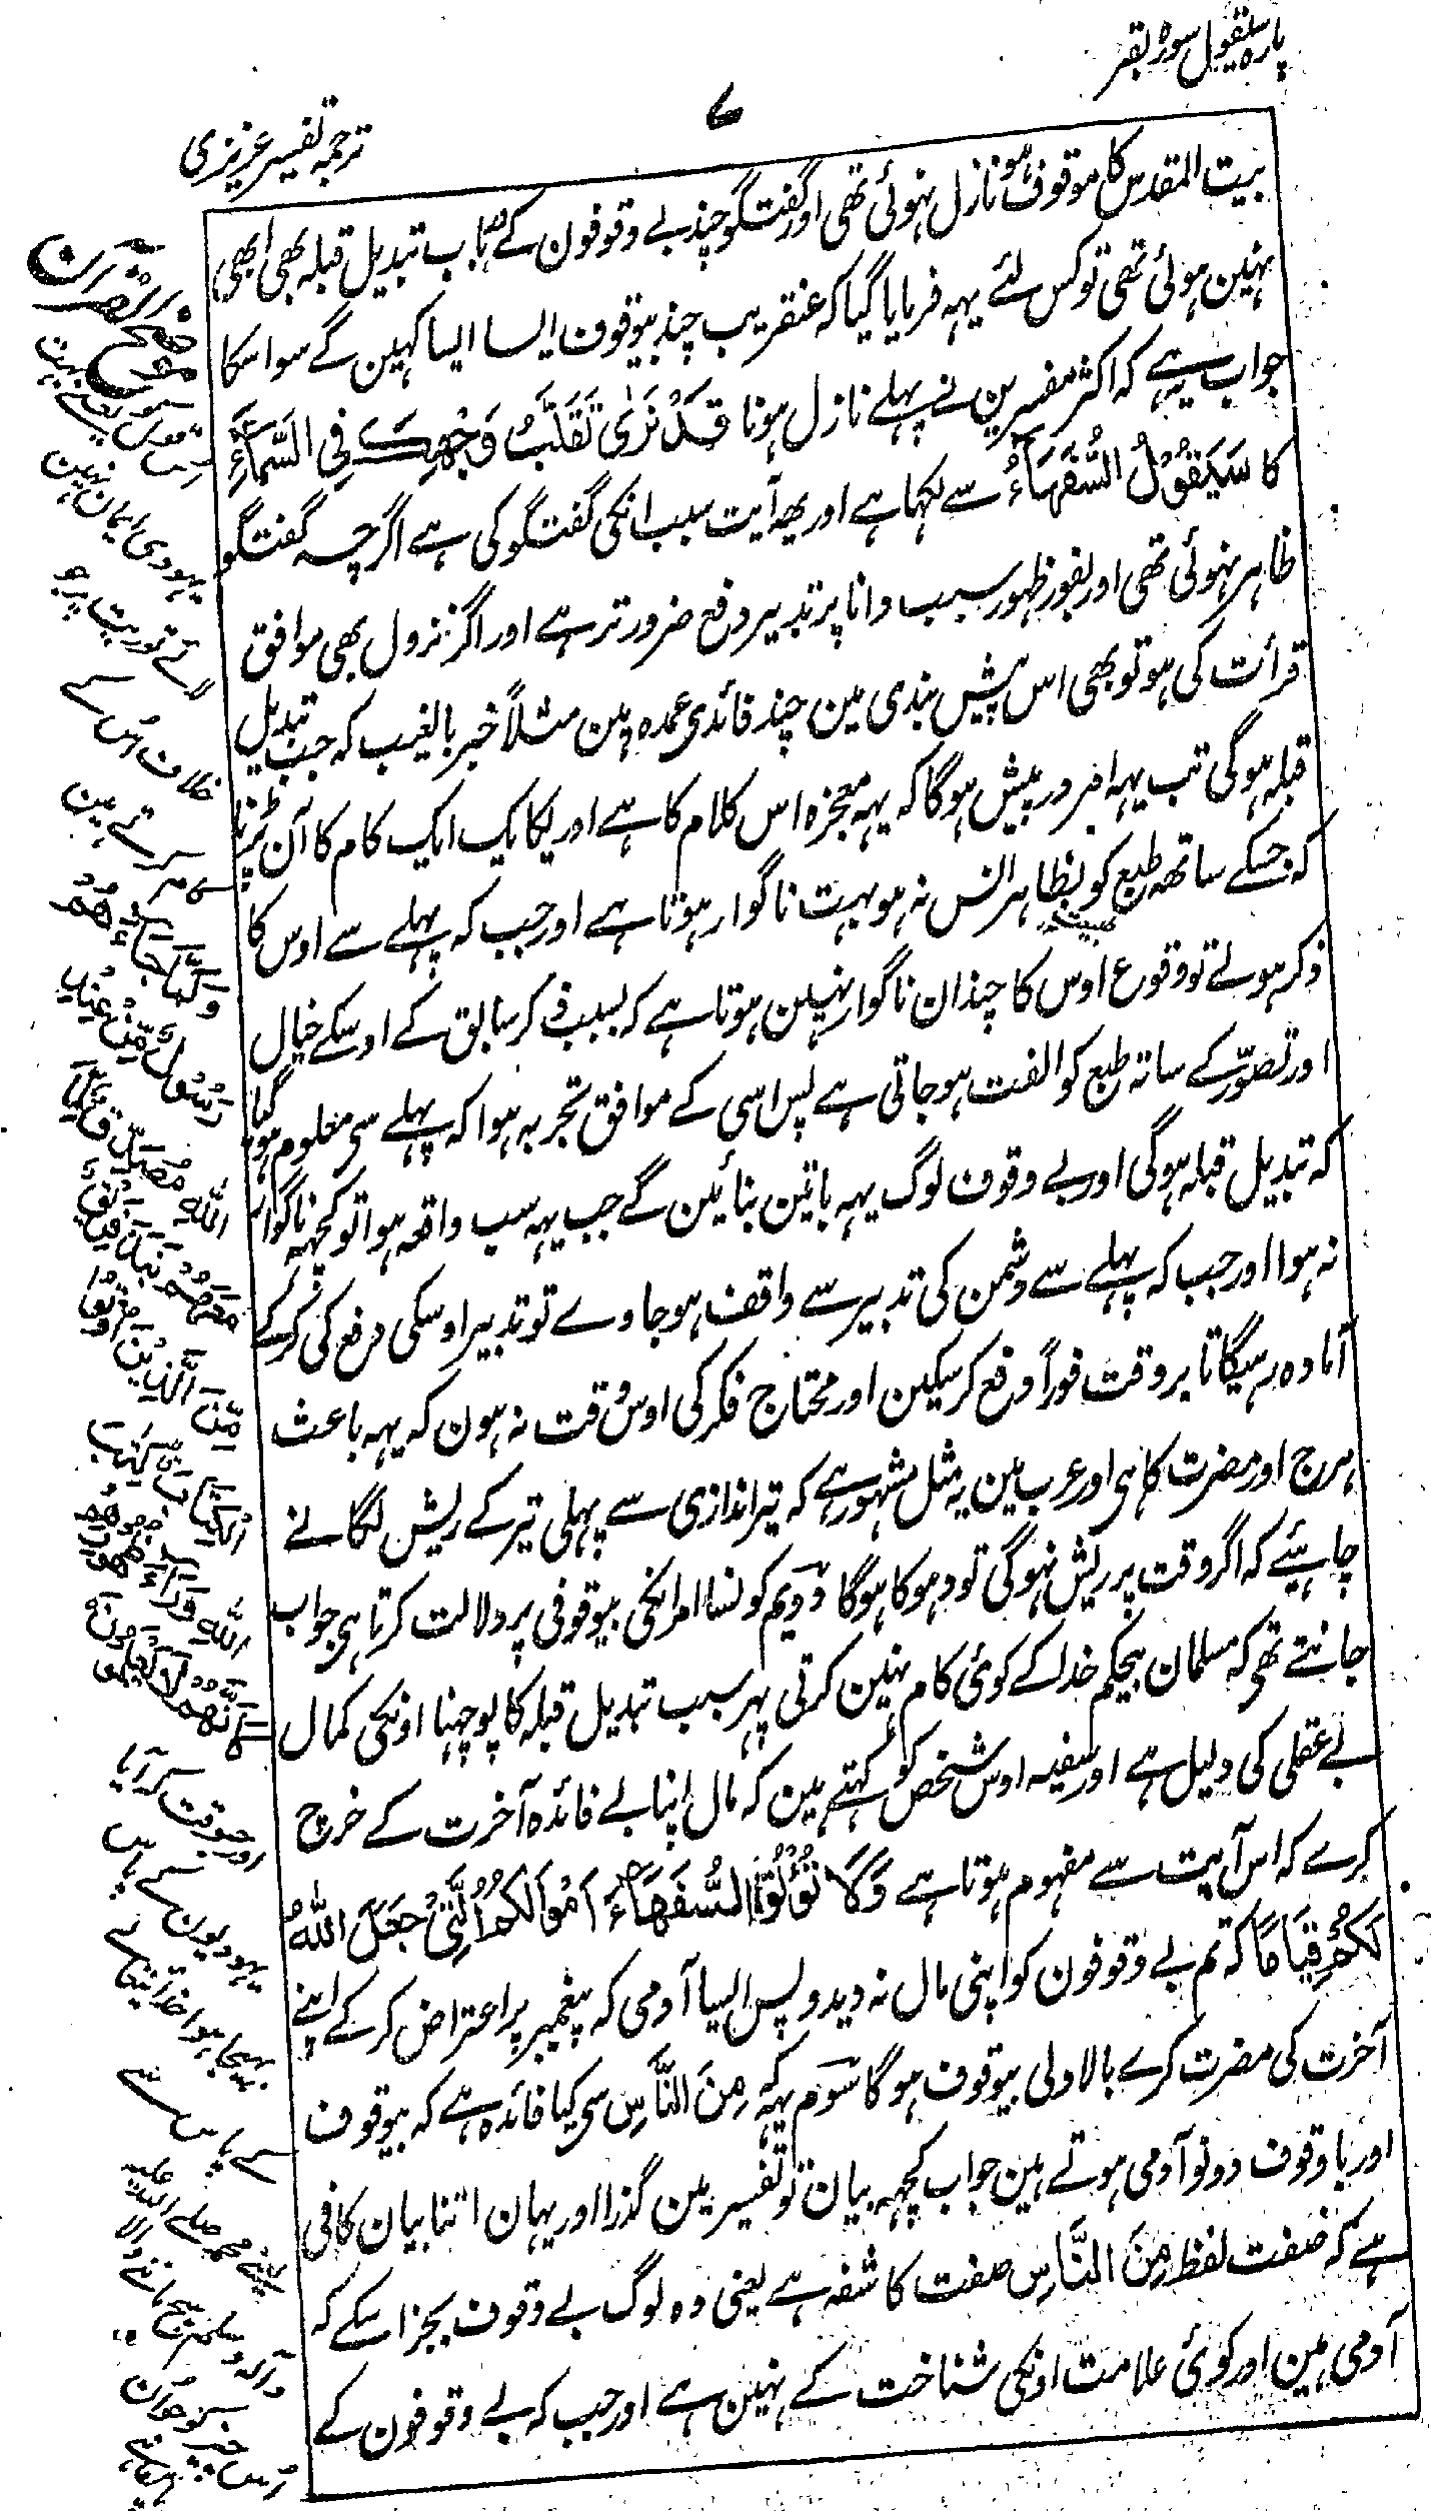 پارہ سیقول سورہ بقر
۷
ترجمہ تفسیر عزیزی
بیت المقدس کا موقوف ہو نازل نہوئی تھی اور گفتگو چند بے وقوفون کے باب تبدیل قبلہ بھی ابھی
نہین ہوئی تھی تو کس لئے یہہ فرمایا گیا کہ عنقریب چند بیوقوف ایسا ایسا کہین گے سو اسکا
جواب یہ ہے کہ اکثر مفسرین نے پہلے نازل ہونا قَدْ نَرٰی تَقَلُّبَ وَجْهِكَ فِی السَّمَآءِ
کا سَیَقُوْلُ السُّفَهَآءُ سے لکہا ہے اور یہہ آیت سبب انکی گفتگو کی ہے اگرچہ گفتگو
ظاہر نہوئی تھی اور بفور ظہور سبب دانا پر تدبیر دفع ضرور تر ہے اور اگر نزول بھی موافق
قرأت کی ہو تو بھی اس پیش بندی مین چند فائدی عمدہ ہین مثلاً خبر بالغیب کہ جب تبدیل
قبلہ ہوگی تب یہہ امر در پیش ہوگا کہ یہہ معجزہ اس کلام کا ہے اور یکایک ایک کام کا آن پڑنا
کہ جسکے ساتھہ طبع کو بظاہر انس نہ ہو بہت ناگوار ہوتا ہے اور جب کہ پہلے سے اوس کا
ذکر ہولے تو وقوع اوس کا چندان ناگوار نہین ہوتا ہے کہ بسبب ذکر سابق کے اوسکے خیال
اور تصوّر کے ساتہ طبع کو الفت ہوجاتی ہے پس اسی کے موافق تجربہ ہوا کہ پہلے سی معلوم ہوگیا
کہ تبدیل قبلہ ہوگی اور بے وقوف لوگ یہہ باتین بنائین گے جب یہہ سب واقعہ ہوا تو کچہہ ناگوار
نہ ہوا اور جب کہ پہلے سے دشمن کی تدبیر سے واقف ہوجاوے تو تدبیر اوسکی دفع کی کرکے
آمادہ رہیگا تا بر وقت فوراً دفع کرسکین اور محتاج فکر کی اوس وقت نہ ہون کہ یہہ باعث
ہرج اور مضرت کا ہی اور عرب مین یہ مثل مشہور ہے کہ تیر اندازی سے پہلی تیر کے ریش لگانے
چاہیئے کہ اگر وقت پر ریش نہوگی تو دہوکا ہوگا دویم کونسا امر انکی بیوقوفی پر دلالت کرتا ہی جواب
جانتے تھی کہ مسلمان بیحکم خدا کے کوئی کام نہین کرتی پہر سبب تبدیل قبلہ کا پوچہنا اونکی کمال
بے عقلی کی دلیل ہے اور سفیہ اوس شخص کو کہتے ہین کہ مال اپنا بے فائدہ آخرت کے خرچ
کرے کہ اس آیت سے مفہوم ہوتا ہے وَلَا تُؤْتُوا السُّفَهَآءَ اَمْوَالَكُمُ الَّتِیْ جَعَلَ اللّٰهُ
لَكُمْ قِیَامًا کہ تم بے وقوفون کو اپنی مال نہ دیدو پس ایسا آدمی کہ پیغمبر پر اعتراض کرکے اپنے
آخرت کی مضرت کرے بالاولی بیوقوف ہوگا سوم یہہ کہ مِنَ النَّاسِ سی کیا فائدہ ہے کہ بیوقوف
اور باوقوف دونو آدمی ہوتے ہین جواب کچہہ بیان تو تفسیر مین گذرا اور یہان اتنا بیان کافی
ہے کہ صفت لفظ مِنَ النَّاسِ صفت کاشفہ ہے یعنی وہ لوگ بے وقوف بجز اسکے کہ
آدمی ہین اور کوئی علامت اونکی شناخت کے نہین ہے اور جب کہ بے وقوفون کے
موضح القرآن
یہودی ایمان نہین
لاتے توریت پر جو
خلاف اس کے
کرتے ہین
وَلَمَّا جَآءَهُمْ
رَسُوْلٌ مِّنْ عِنْدِ
اللّٰهِ مُصَدِّقٌ لِّمَا
مَعَهُمْ نَبَذَ فَرِیْقٌ
مِّنَ الَّذِیْنَ اُوْتُوا
الْكِتٰبَ كِتٰبَ
اللّٰهِ وَرَآءَ ظُهُوْرِهِمْ
كَاَنَّهُمْ لَا یَعْلَمُوْنَ
اور جو وقت کہ آیا
یہودیون کے پاس
بہیجا ہوا خدا تعالے
کے پاس سے
یعنے محمد صلے اللہ علیہ
وآلہ وسلم سچ ماننے والا
اس چیز کو جو ان